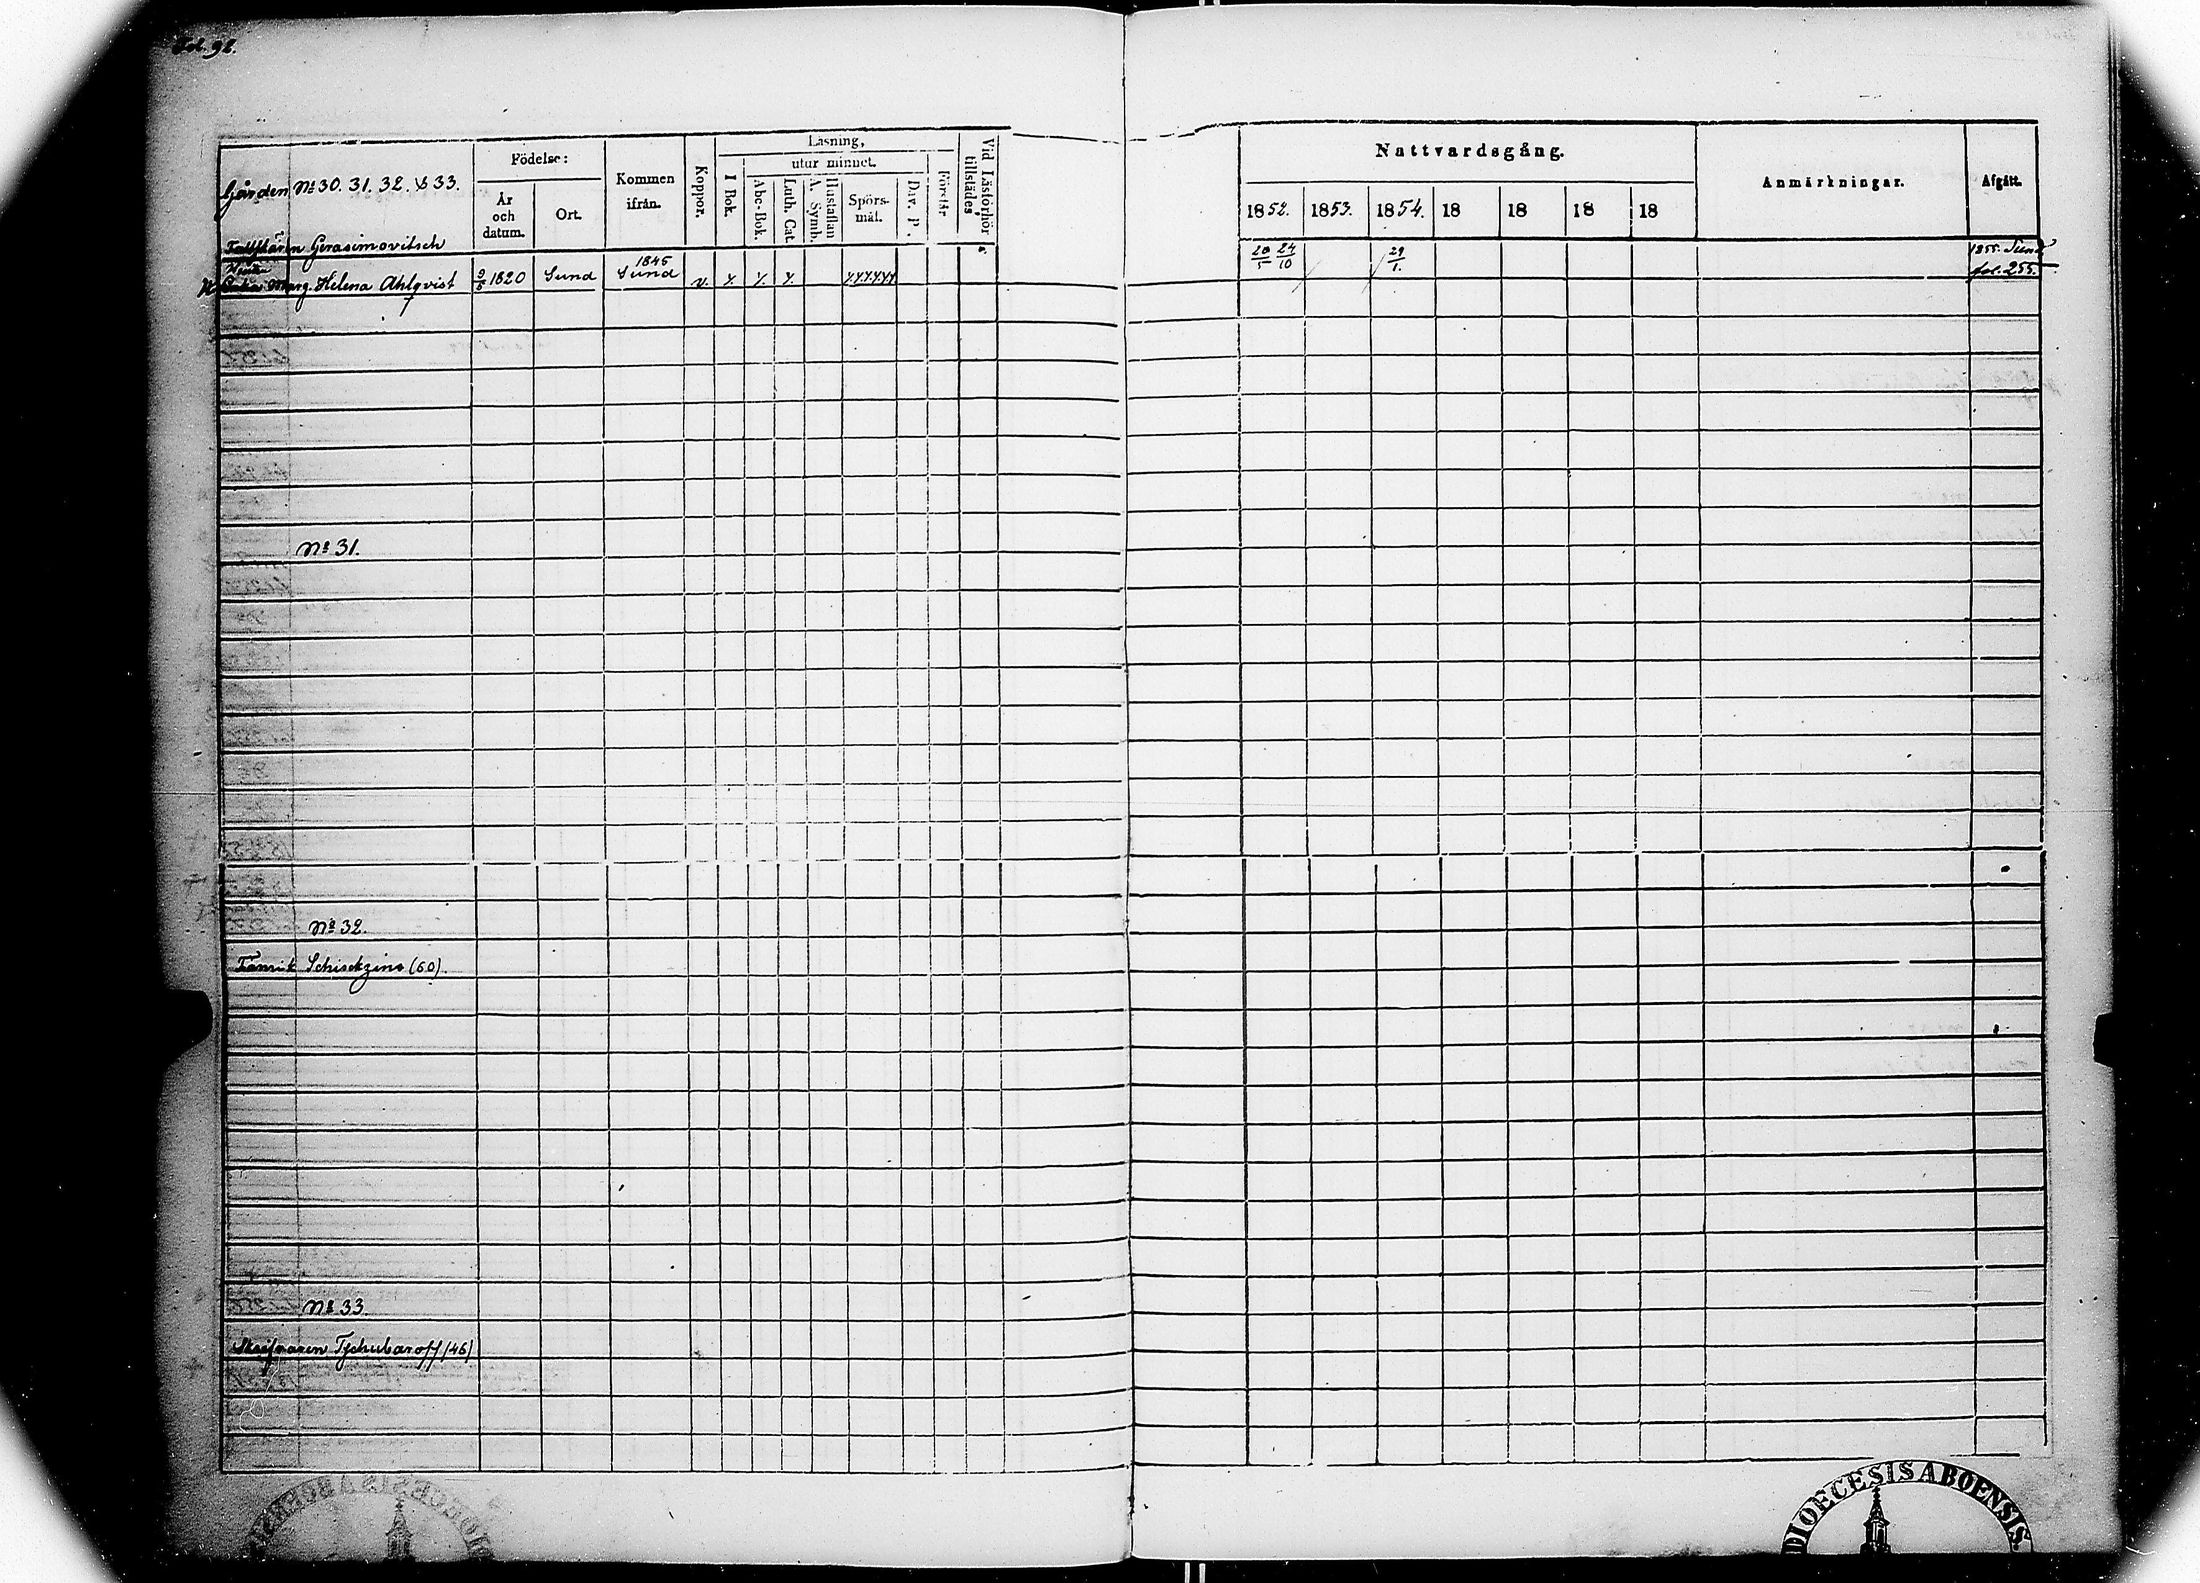 Fol. 92.
Gården № 30. 31. 32. & 33.
Födelse:
År och datum.
Ort.
Kommen ifrån.
Koppor.
Läsning,
utur minnet.
I Bok.
Abc-Bok.
Luth. Cat.
Hustaflan A. Symb.
Spörsmål.
Dav. P.
Förstår
Vid Läsförhör tillstädes
Nattvardsgång.
1852. 1853. 1854. 18 18 18 18
Anmärkningar.
Afgått.
Gerasimovitsch
Marg. Helena Ahlqvist 9/5 1820 Sund 1845 Sund v. 20/5 24/10 29/1. 1855. Sund fol. 255.
№ 31.
№ 32.
Fänrik Schisckzino (60).
№ 33.
Tschubaroff (46)
DIOECESIS ABOENSIS.